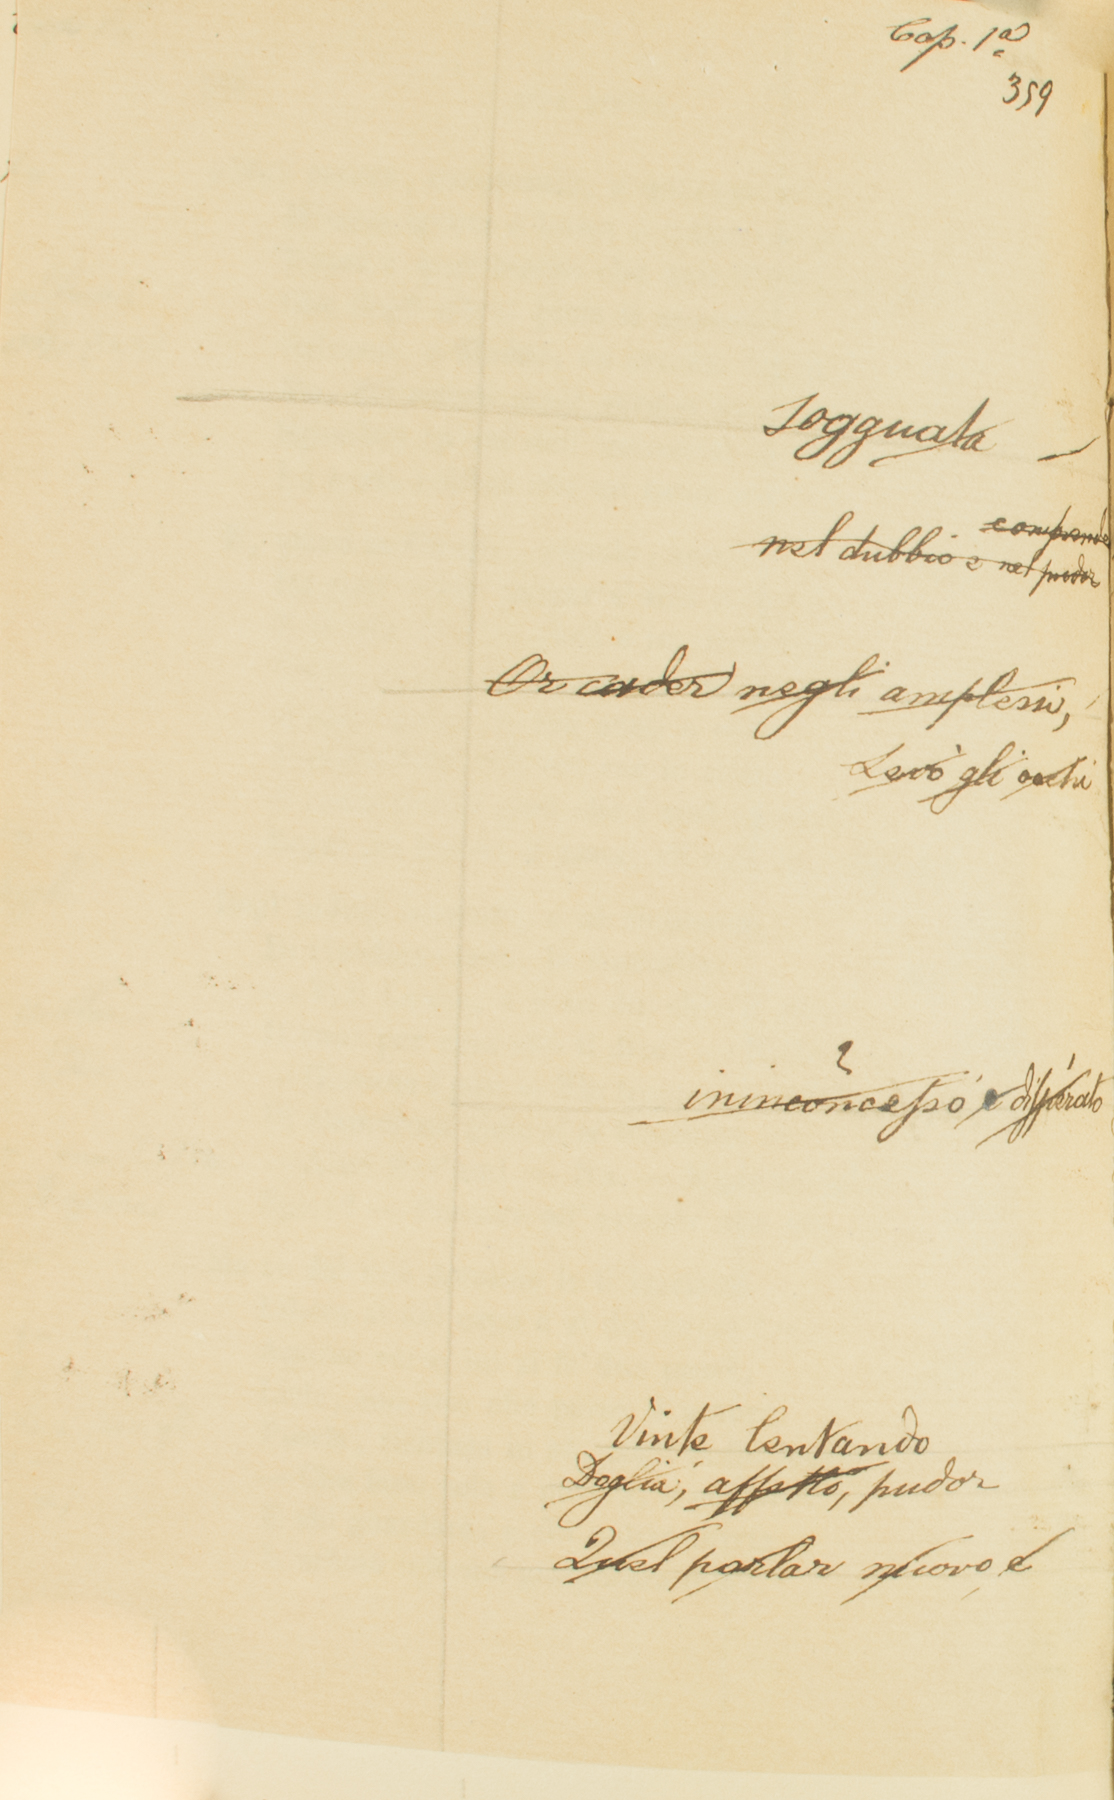 Cap. 1º
359
sogguata
comprende
nel dubbio e nel pudor
Or cader negli amplessi,
Levò gli occhi
ininconcesso e disperato
Vinte lentando
Doglia, affetto, pudor
Quel parlar nuovo, e